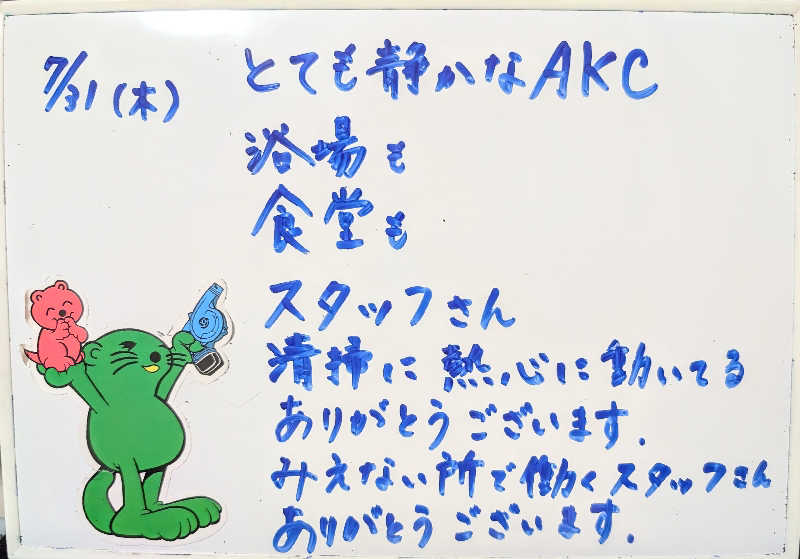 7/31(木)
とても静かなAKC
浴場も
食堂も
スタッフさん
清掃に熱心に動いてる
ありがとうございます.
みえない所で働くスタッフさん
ありがとうございます.